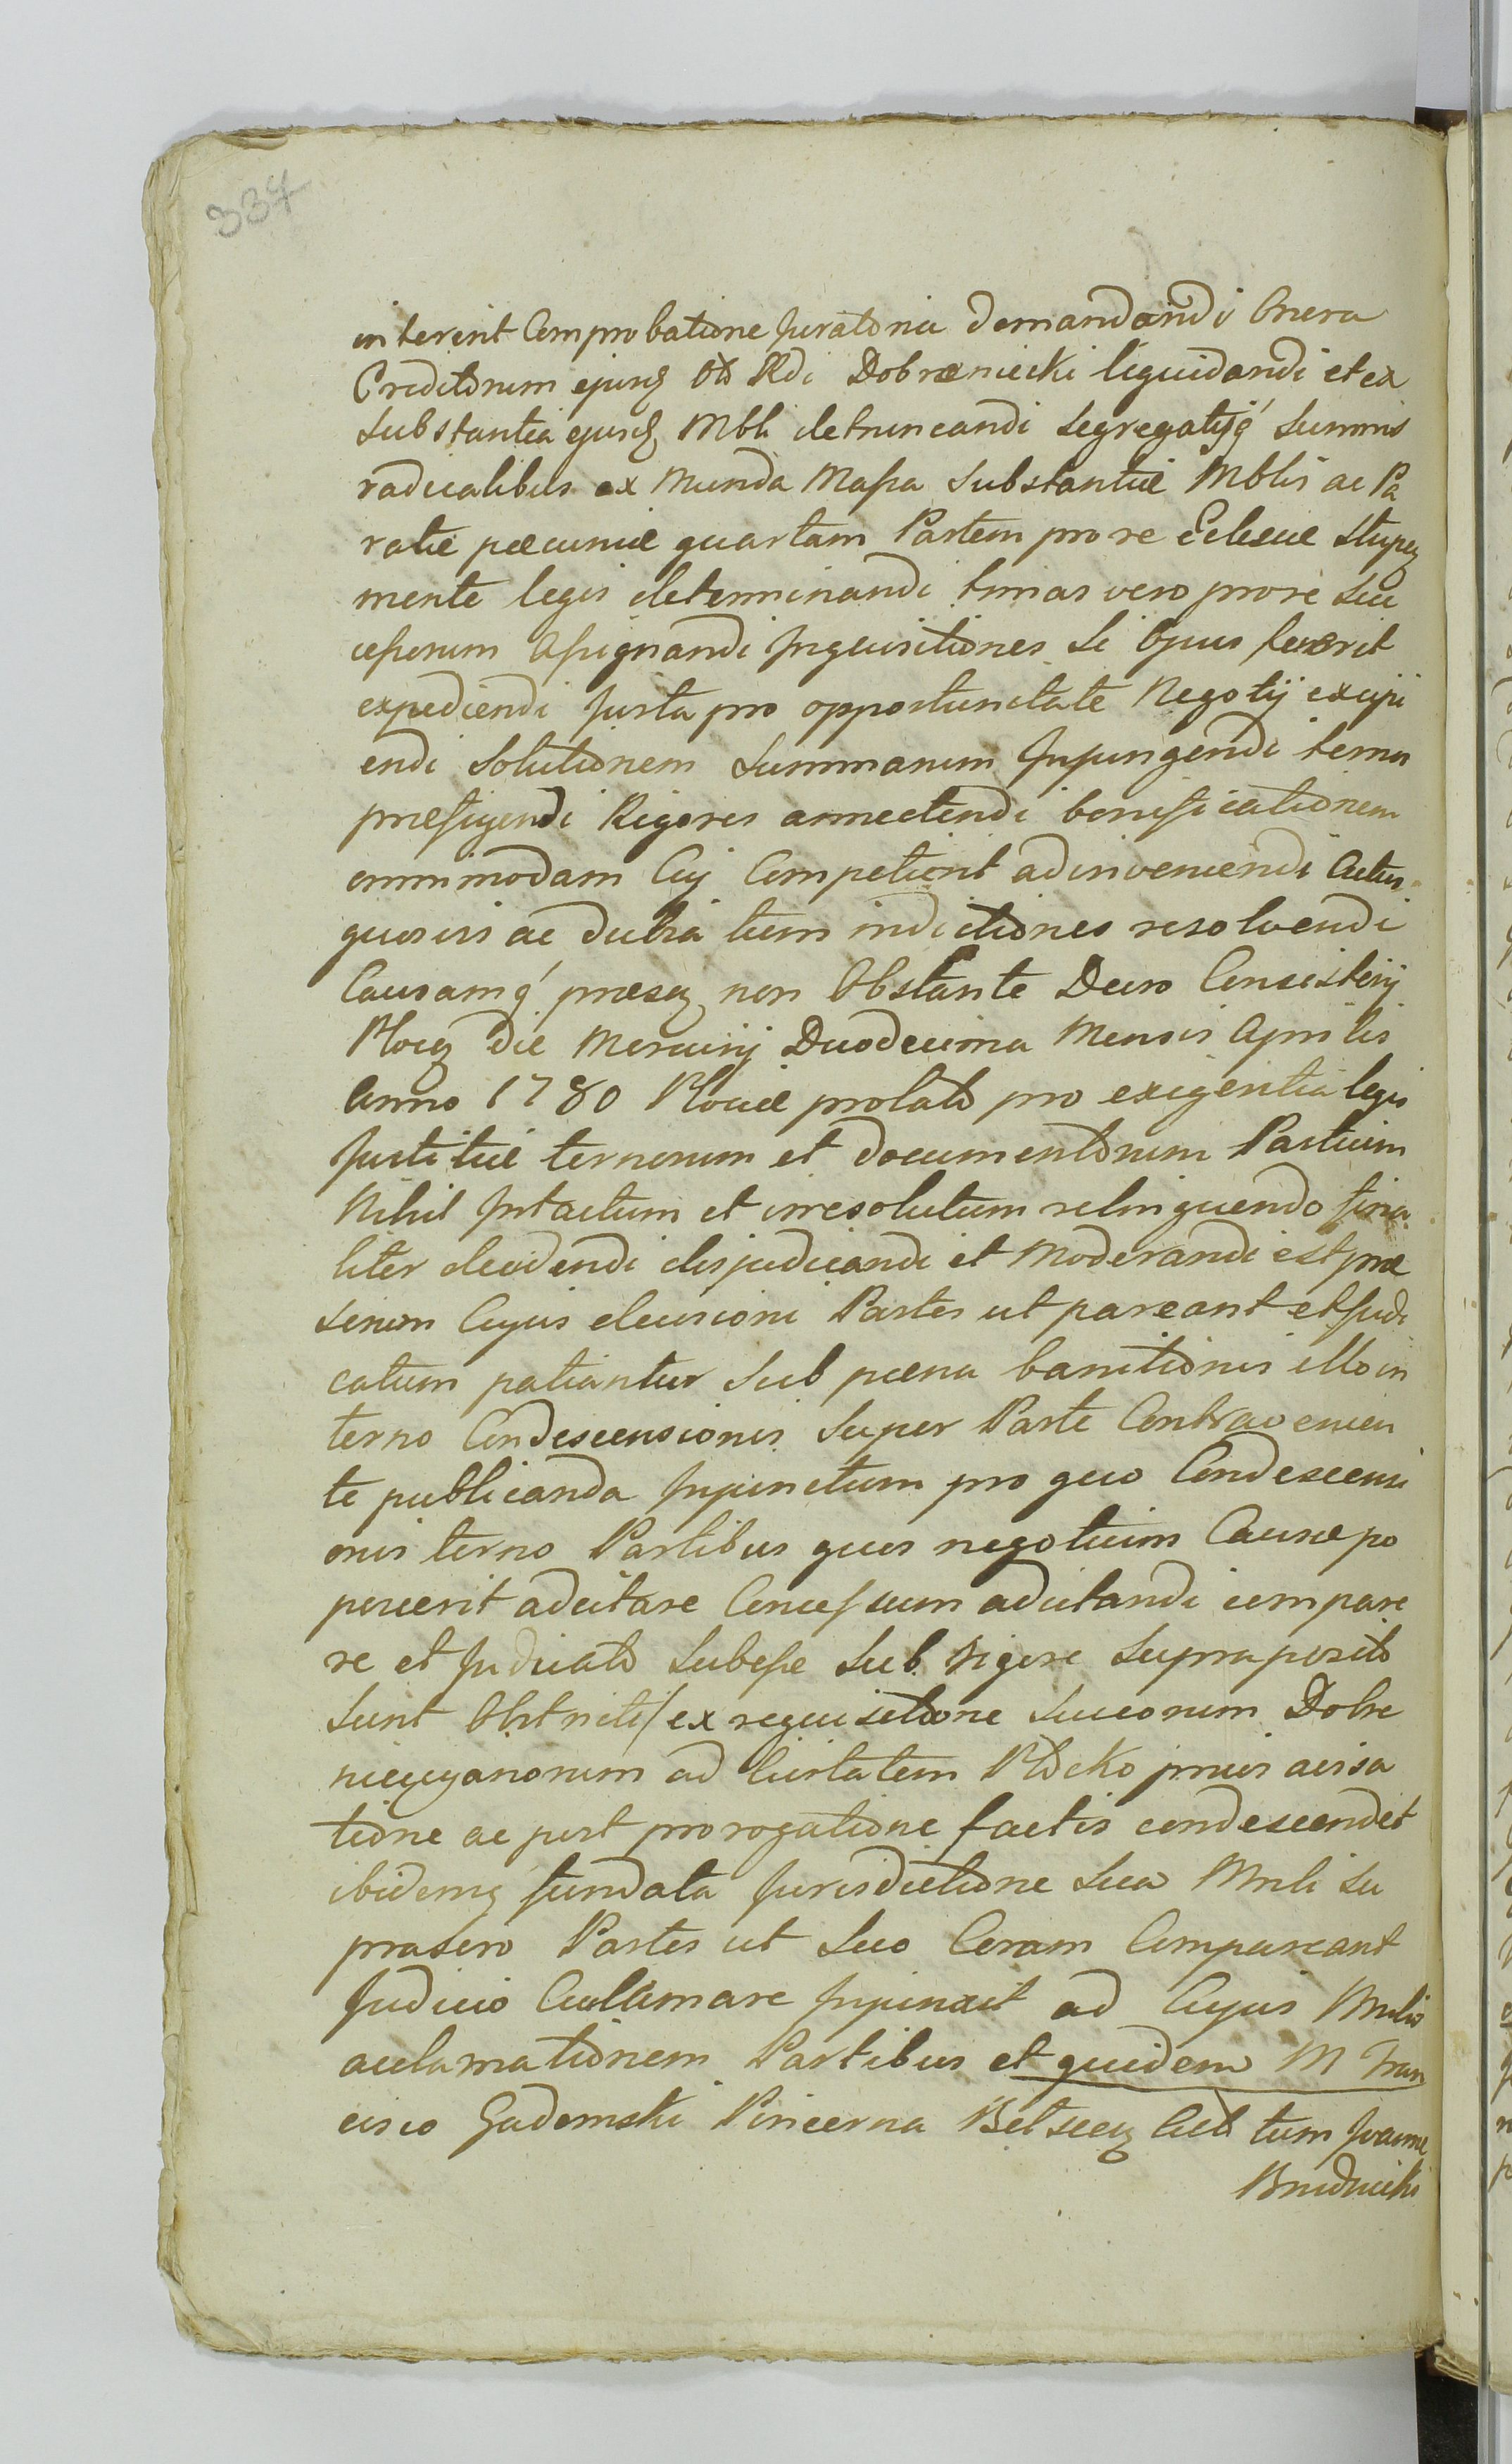 337
interint Comprobatione Juratoria demandandi Onera
Creditorum ejusq Rdi Dobrzeniecki liquidandi et ex
Substantia ejusq Mbli detruncandi Segregatisq́ Summis
radicalibus ex Munda Massa Substantiæ Mblis ac Pa
ratæ pæcuniæ quartam Partem pro re Eclesiæ
mente legis determinandi trinas vero pro re Suc
cessorum Assignandi Inquisitiones Si Opus fuerit
expediendi Jurta pro opportunitate Negotij excipi
endi Solutionem Summarum Injungendi terna
præfigendi Rigores annectendi bonificationem
ommimodam Cuj Competierit adinveniendi Actus
quosvis ac dubia tum indictiones resolvendi
Causamq́ præsq non Obstante Decro Consistorij
Plocq die Mercurij Duodecima Mensis Aprilis
Anno 1780 Plociæ prolato pro exigentia legis
Justitiæ ternorum et documentorum Partium
Nihil Intactum et irresolutum relinquendo fina
liter decidendi disjudicandi et Moderandi est præ
sertim Cujus decisioni Partes ut pareant et Judi
catum patiantur Sub pæna banitionis illo in
terno Condescensionis Super Parte Contravenien
te publicanda Injunctum pro quo Condescensi
onis terno Partibus quos negotium Causæ po
poscerit adcitare Concessum adcitandi compare
re et Judicato Subesse Sub rigore Supraposito
Sunt Obstricti/ ex requisitione Succorum Dobrze
niecyanorum ad Civitatem Plocko prævis avisa
tione ac post prorogatione factis condescendit
ibidemq fundata Jurisdictione Sua Mnli Su
prasero Partes ut Suo Coram Compareant
Judicio Acclamare Injunxit ad Cujus Mnlis
acclamationem Partibus et quidem M Fran
cisco Gadomski Pincerna Belscen Act tum Joanne
Brudnicki